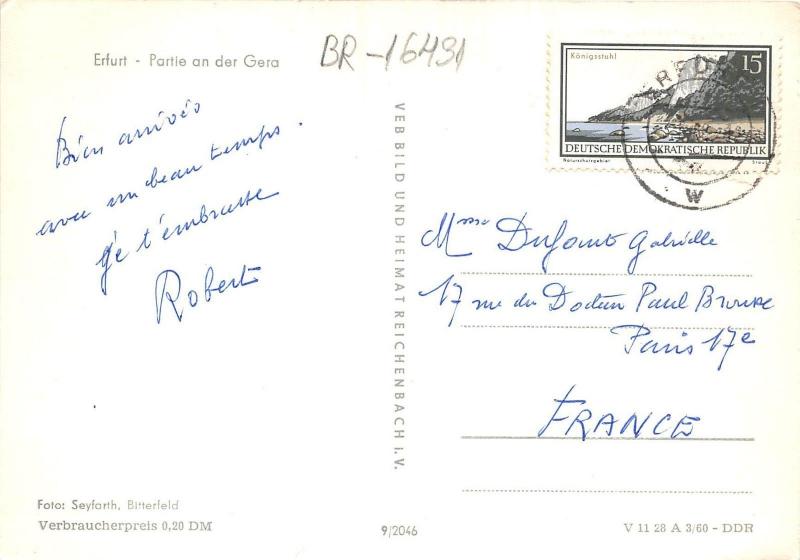 Erfurt - Partie an der Gera
BR-16491
Bien arrivés
avec un beau temps.
Je t'embrasse
Robert
VEB BILD UND HEIMAT REICHENBACH i. V.
Königsstuhl
15
DEUTSCHE DEMOKRATISCHE REPUBLIK
Naturschutzgebiet
W
Mme Gabrielle
17 rue du Docteur Paul Brousse
Paris 17e
FRANCE
Foto: Seyfarth, Bitterfeld
Verbraucherpreis 0,20 DM
9/2046
V 11 28 A 3/60 - DDR